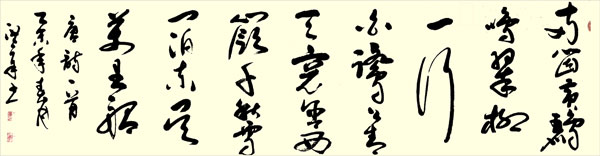 兩個黃鸝
鳴翠柳
一行
白鷺上青
天窗含西
嶺千秋雪
門泊東吳
萬里船
唐詩一首
乙未年春月
书